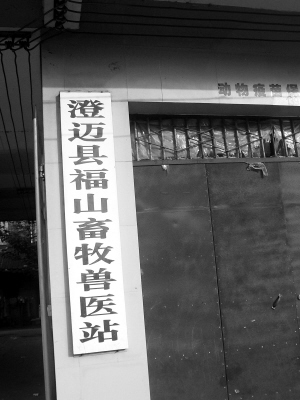 澄迈县福山畜牧兽医站
动物